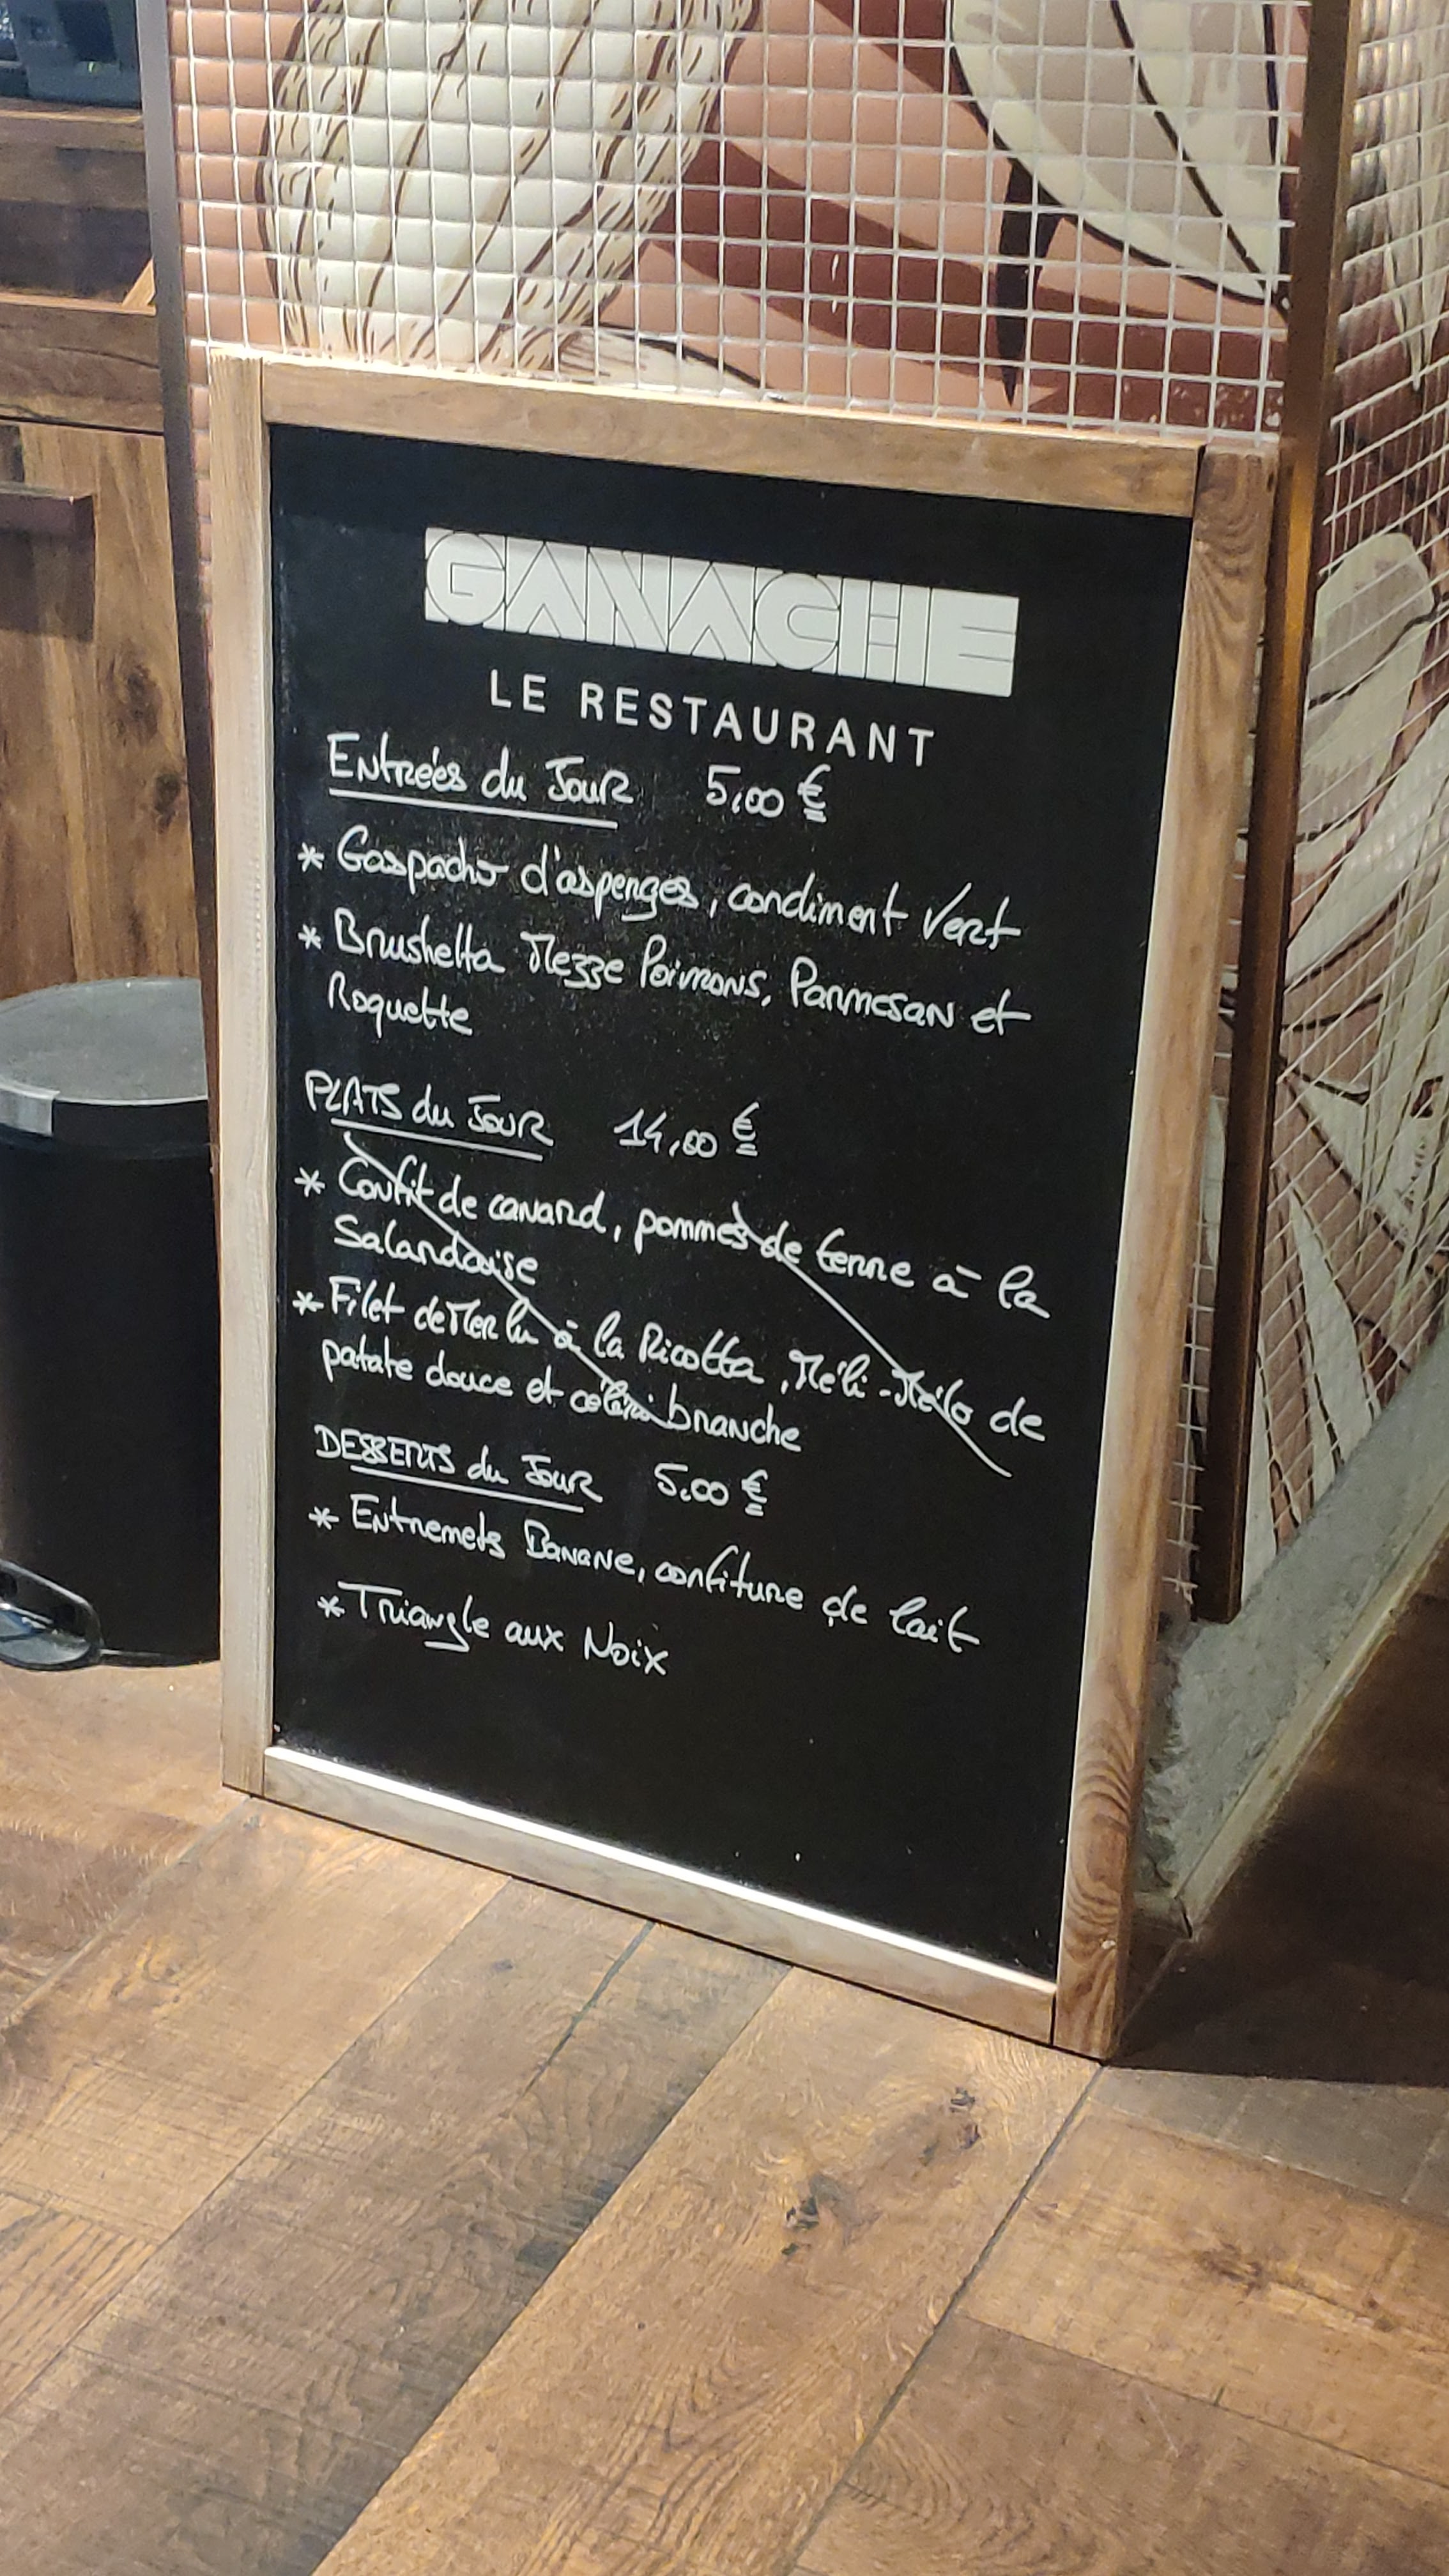 GANACHE
LE RESTAURANT
Entrées du Jour 5,00 €
* Gaspacho d'asperges, condiment vert
* Brushetta Mezze Poivrons, Parmesan et
Roquette
PLATS du JOUR 14,00 €
* Confit de canard, pommes de terre à la
Salardaise
* Filet de Merlu à la Ricotta, Méli-Mélo de
patate douce et céleri branche
DESSERTS du Jour 5.00 €
* Entremets Banane, confiture de lait
* Triangle aux Noix